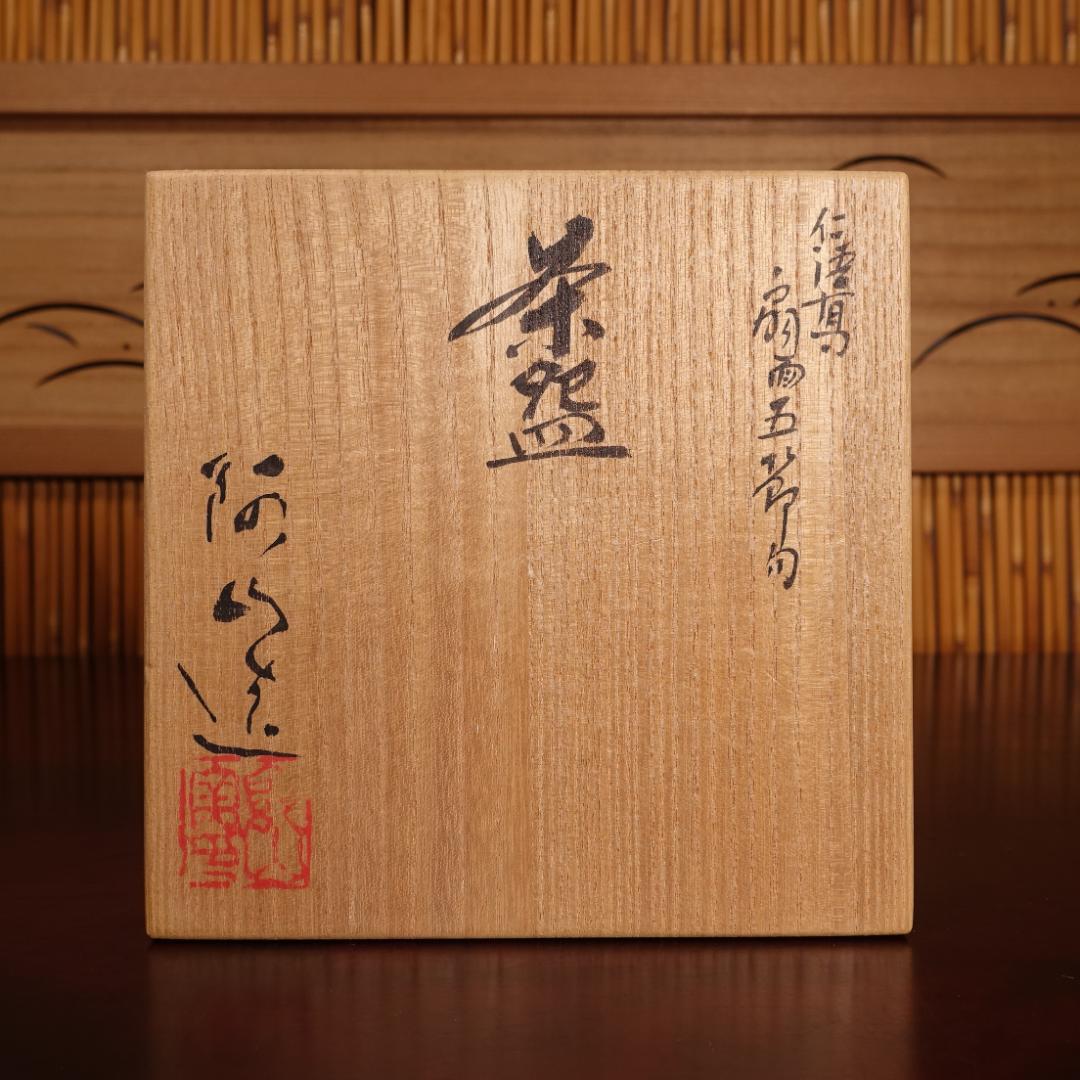 仁清写
扇面五節句
茶盌
阿山造